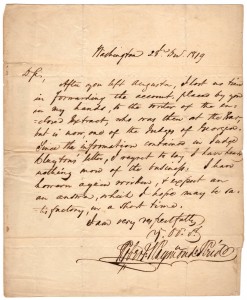 Washington 28th Dec. 1819
D Sir,
After you left Augusta, I lost no time
in forwarding the account, placed by you
in my hands, to the writer of the en-
closed extract, who was then at the Bar,
but is now, one of the Judges of Georgia.
Since the information contained in Judge
Clayton's letter, I regret to say, I have heard
nothing more of the business. I have
however again written, & expect an
an answer, which I hope may be sa-
tisfactory, in a short time.
I am very respectfully
Yr. Ob. St.
Robert Raymond Reid